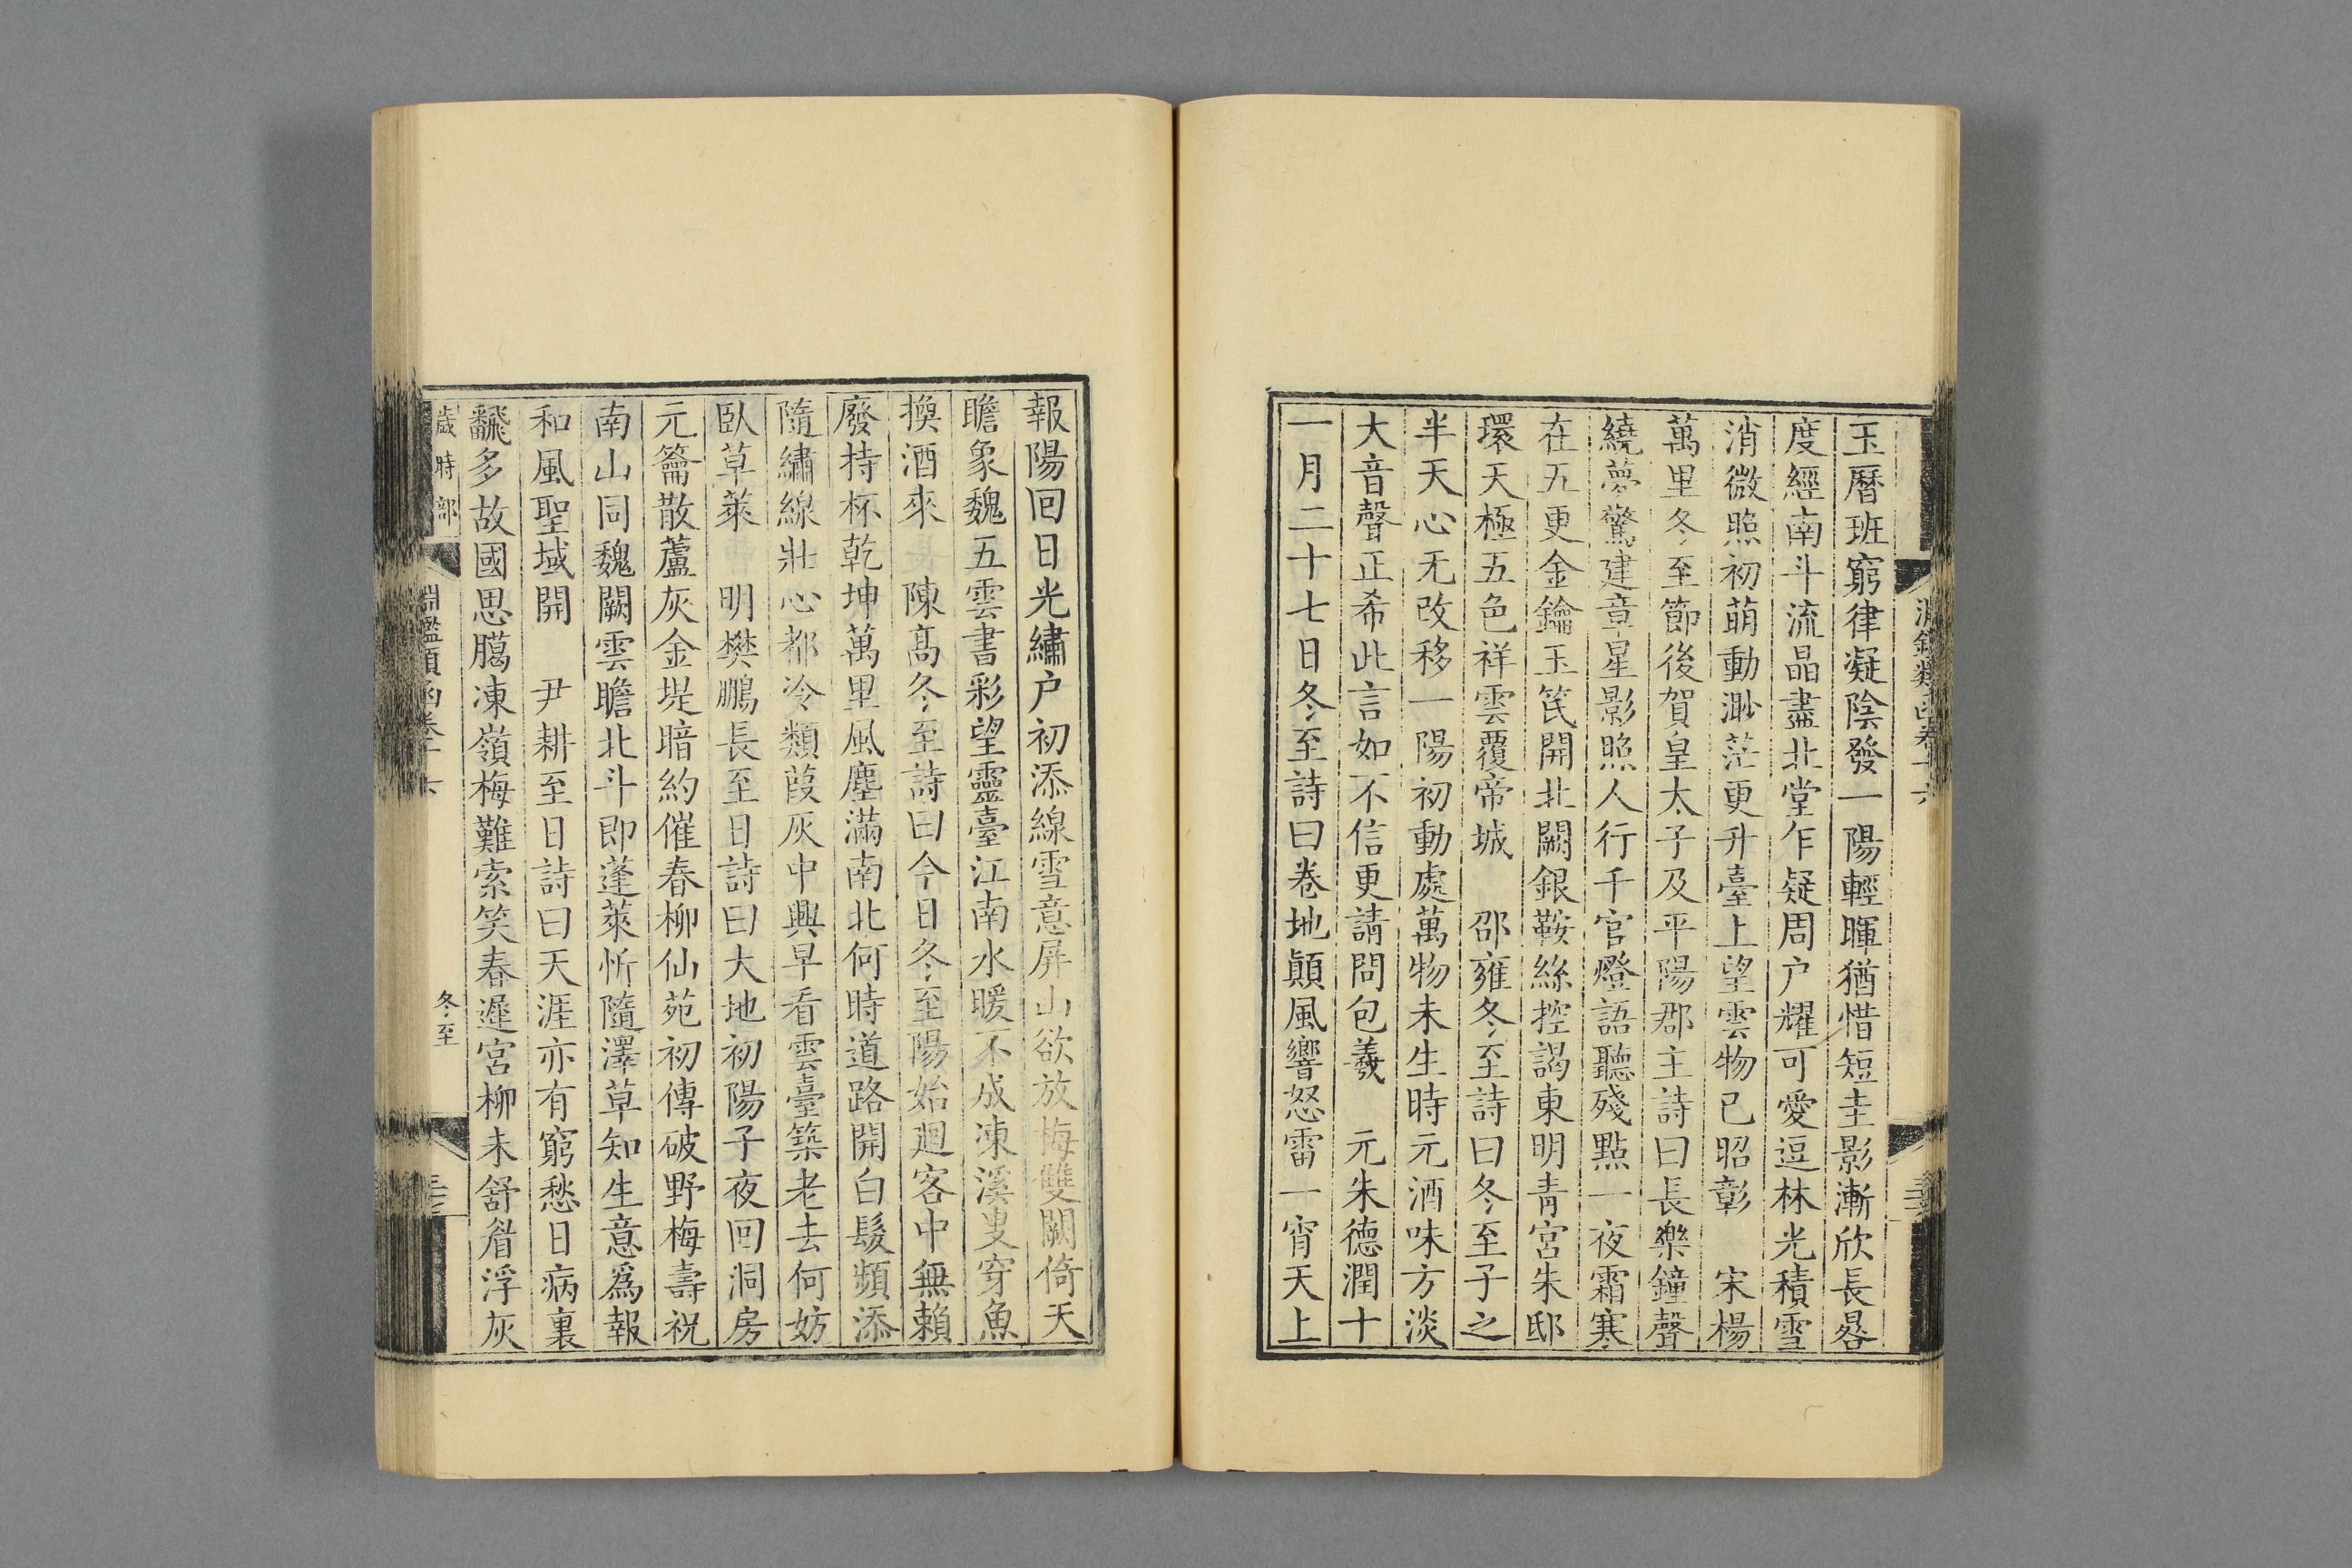 玉曆班窮律凝陰發一陽輕暉猶惜短圭影漸欣長晷
度經南斗流晶盡北堂乍疑周户耀可愛逗林光積雪
消微照初萌動渺茫更升臺上望雲物已昭彰　宋楊
萬里冬至節後賀皇太子及平陽郡主詩曰長樂鐘聲
繞夢驚建章星影照人行千官燈語聽殘點一夜霜寒
在五更金鑰玉笢開北闕銀鞍絲控謁東明青宮朱邸
環天極五色祥雲覆帝城　邵雍冬至詩曰冬至子之
半天心无改移一陽初動處萬物未生時元酒味方淡
大音聲正希此言如不信更請問包羲　元朱德潤十
一月二十七日冬至詩曰卷地顛風響怒雷一宵天上
報陽回日光繡户初添線雪意屏山欲放梅雙闕倚天
瞻象魏五雲書彩望靈臺江南水暖不成凍溪叟穿魚
換酒來　陳髙冬至詩曰今日冬至陽始迴客中無賴
廢持杯乾坤萬里風塵滿南北何時道路開白髮頻添
隨繡線壯心都冷類葭灰中興早看雲臺築老去何妨
臥草萊　明樊鵬長至日詩曰大地初陽子夜回洞房
元籥散蘆灰金堤暗約催春柳仙苑初傳破野梅壽祝
南山同魏闕雲瞻北斗即蓬萊忻隨澤草知生意爲報
和風聖域開　尹耕至日詩曰天涯亦有窮愁日病裏
飜多故國思臈凍嶺梅難索笑春遲宮柳未舒眉浮灰
歲時部
淵鑑類函卷十六
冬至